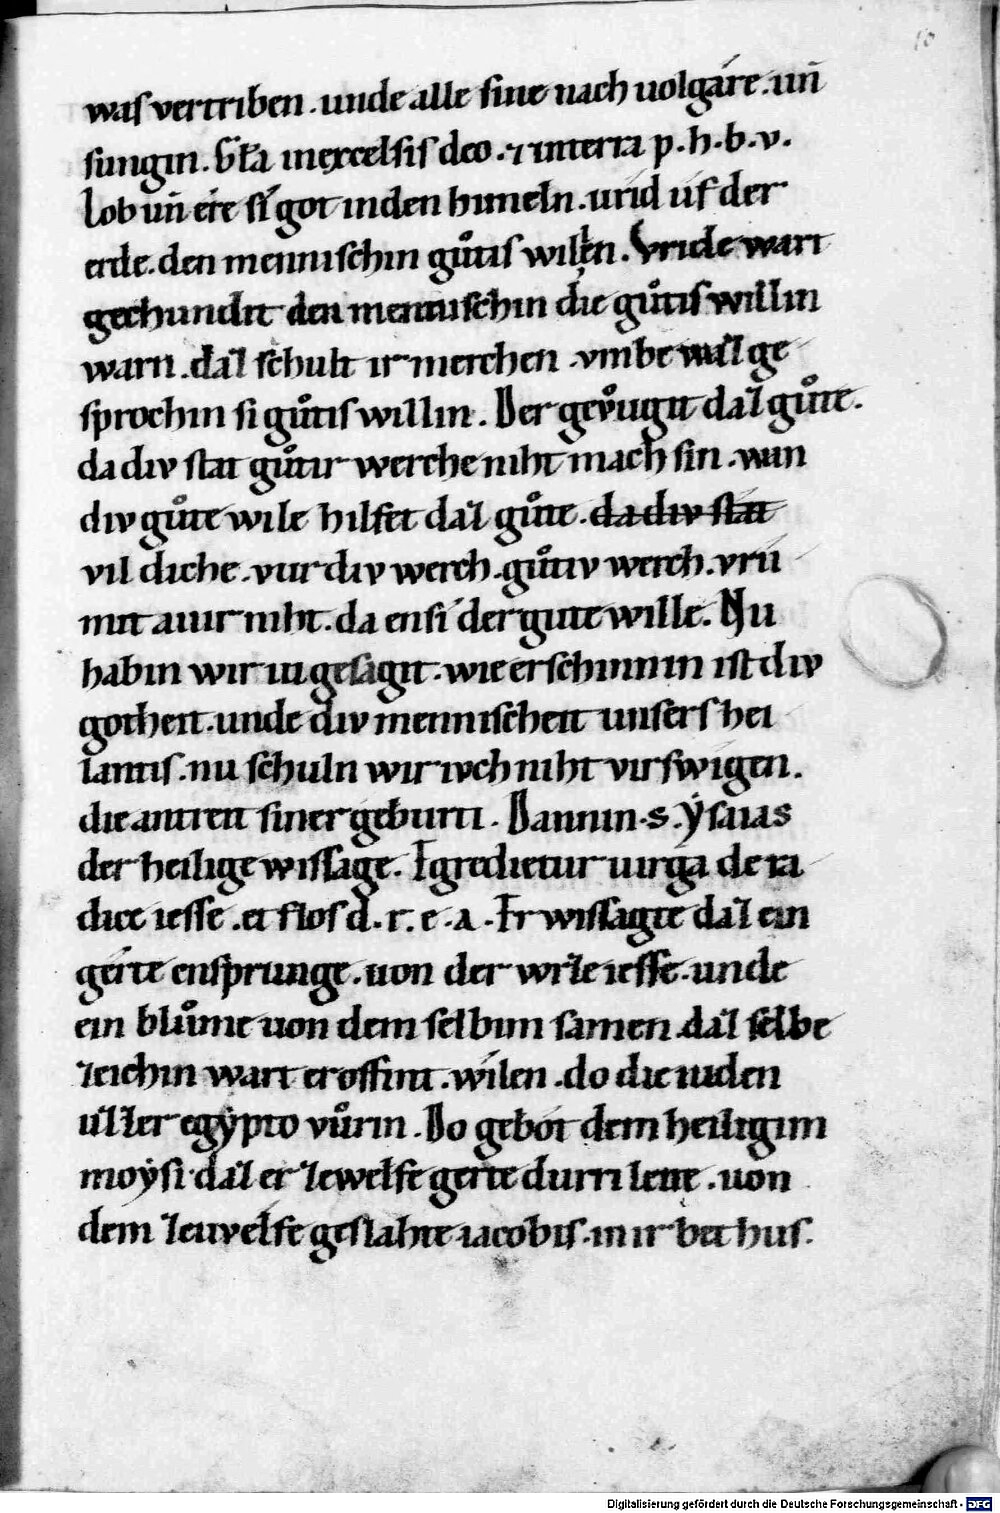 10
was vertriben . unde alle sine nach uolgǽre . un̄
sungin . Gl̄a inexcelsis deo . ⁊ interra p . h . b . v .
Lob un̄ ére sí got inden himeln . urid úf der
erde . den mennischin gůtis willen . Vride wart
gechundit den mennischin die gůtis willin
warn . daʒ schult ir merchen . vmbe waʒ ge
sprochin si gůtis willin . Der gevůgit daʒ gůte .
da div stat gůtir werche niht mach sin . wan
div gůte wile hilfet daʒ gůte . da div stat
vil diche . vur div werch . gůtiv werch . vrū
mit auir niht . da ensi der gute wille . Nu
habin wir iu gesagit . wie erschinnin ist div
gotheit . unde div mennischeit unsers hei
lantis . nu schuln wir ivch niht virswigen .
die antreit siner geburti . Dannin . s . ẏsaias
der heilige wissage . Egredietur uirga de ra
dice iesse . et flos d . r . e . a . Er wissagte daʒ ein
gérte ensprunge . uon der wrʒe iesse . unde
ein blůme uon dem selbim samen . daʒ selbe
ʒeichin wart eroffint . wílen . do die iuden
uʒʒer egẏpto vůrin . Do gebót dem heiligim
moẏsi . daʒ er ʒewelfe gerte durri lete . uon
dem ʒeuvelfe geslahte iacobis . in ir bet hus .
Digitalisierung gefördert durch die Deutsche Forschungsgemeinschaft - DFG